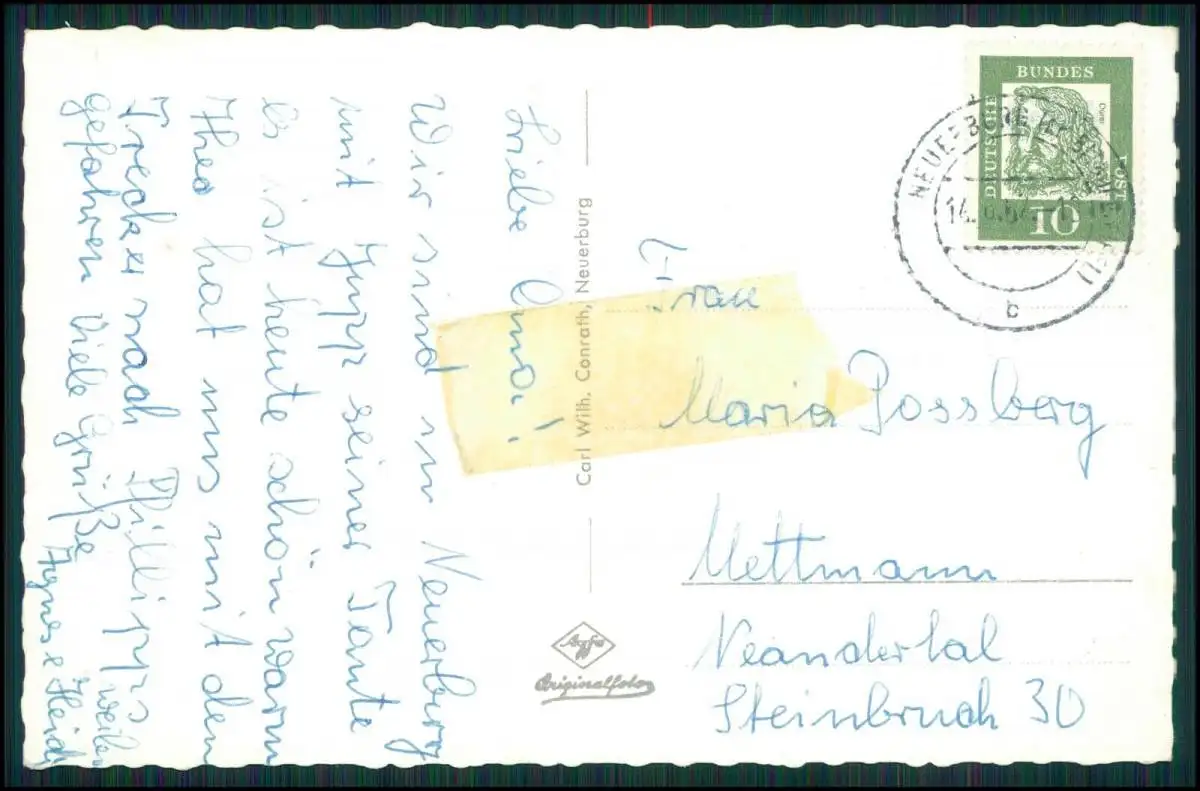 Liebe Oma!
Wir sind in Neuerburg
mit Jupp seiner Tante
es ist heute schön warm
Theo hat uns mit den
Trecker nach Phillipps weiler
gefahren Viele Grüße
Agnes e Heidi
Carl Wilh. Conrath, Neuerburg
Agfa
Originalfoto
DEUTSCHE
BUNDES
POST
Dürer
10
NEUERBURG
b
Frau
Maria Possberg
Mettmann
Neandertal
Steinbruch 30